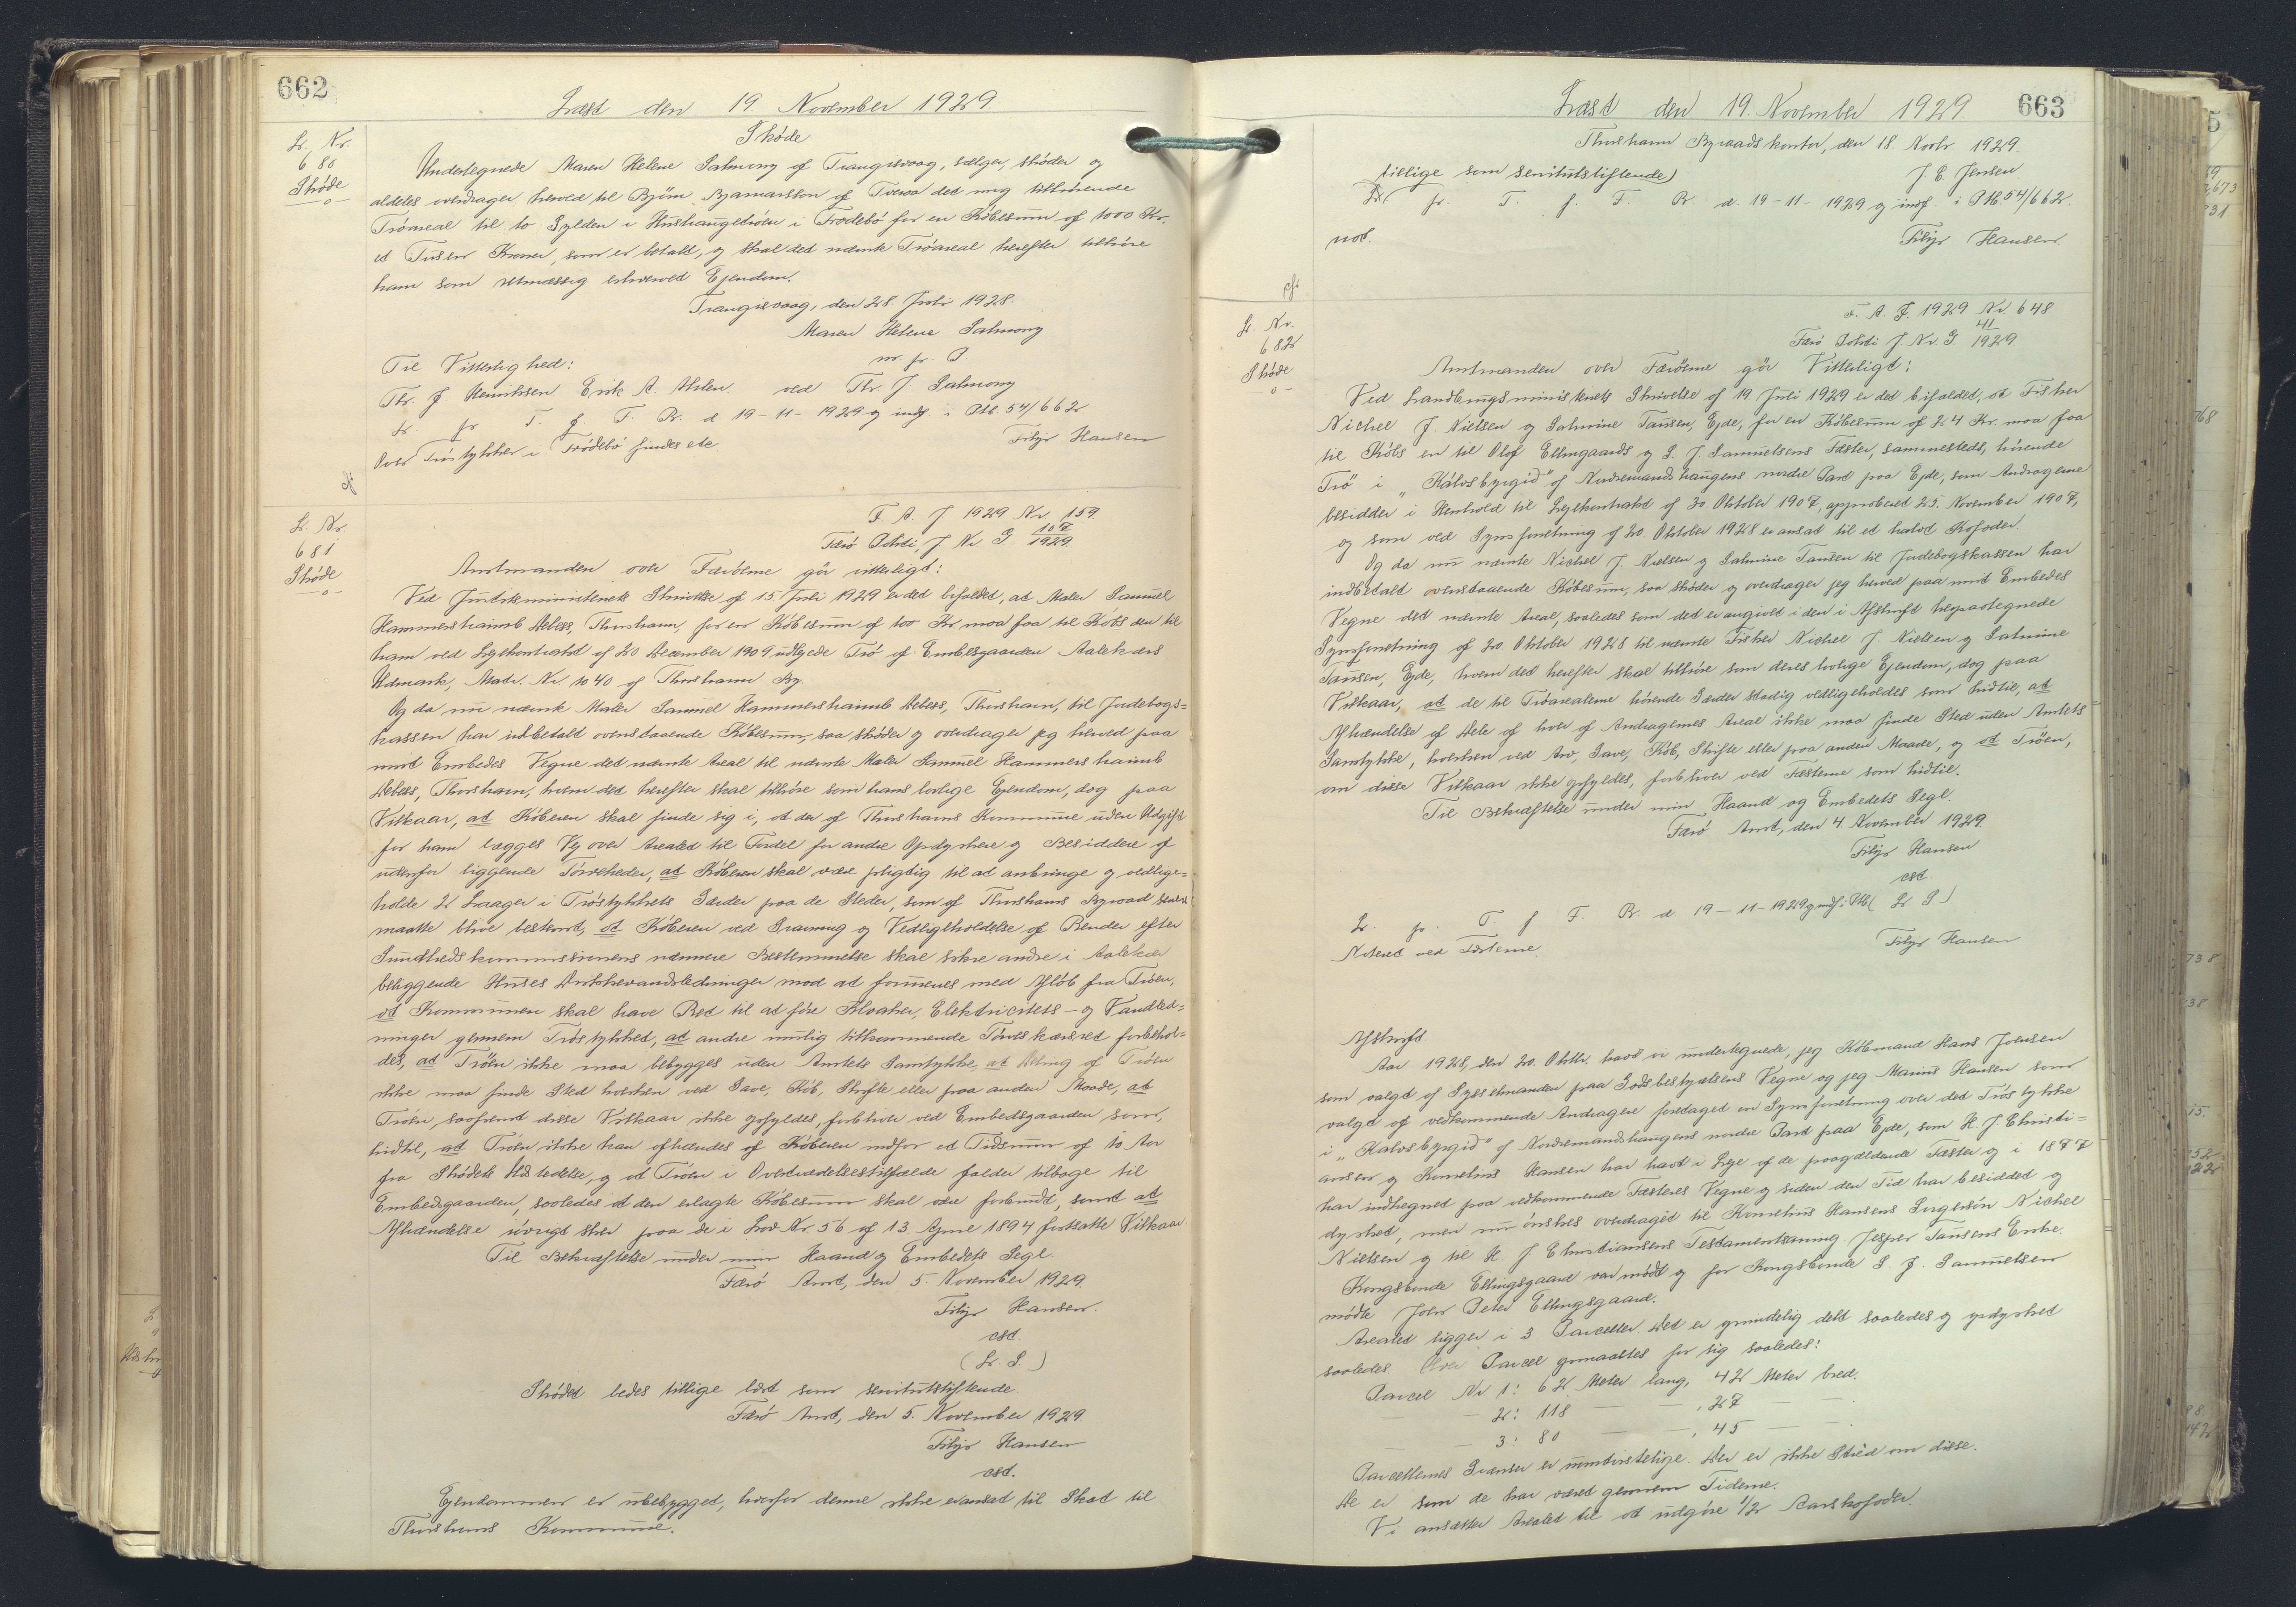 662
Læst den 19. November 1929.
L. Nr.
680
Skøde
Skøde
Undertegnede Maren Helene Salmony af Trangisvaag, sælger, skøder og
aldeles overdrager herved til Bjørn Bjarnarsson af Tveraa det mig tilhørende
Trøareal til to Gylden i Hushaugetrøen i Frodebø for en Købesum af 1000 Kr.
et Tusen Kroner, som er betalt, og skal det nævnte Trøareal herefter tilhøre
ham som retmæssig erhvervet Ejendom.
Trangisvaag, den 28. Juli 1928.
Maren Helene Salmony
m. f. P.
Til Vitterlighed:
Thr. J Henriksen Erik A. Holm. ved Thr J Salmony
L. f. T. f. F. Br. d 19-11-1929 og indf. i Ptb. 54/662.
Over Trøstykker i Frodebø findes ele.
Filip Hansen
L. Nr.
681
Skøde
F. A. J 1929 Nr. 159.
Færø Politi, J. Nr. G 107/1929.
Amtmanden over Færøerne gør vitterligt:
Ved Justitsministeriets Skrivelse af 15 Juli 1929 er det bifaldet, at Maler Samuel
Hammershaimb Debess, Thorshavn, for en Købesum af 100 Kr. maa faa til Købs den til
ham ved Lejekontrakt af 20 December 1909 udlejede Trø af Embedsgaarden Aalekærs
Udmark, Matr. Nr 1040 af Thorshavn By.
Og da nu nævnte Maler Samuel Hammershaimb Debess, Thorshavn, til Jordebogs=
kassen har indbetalt ovenstaaende Købesum, saa skøder og overdrager jeg herved paa
mit Embedes Vegne det nævnte Areal til nævnte Maler Samuel Hammershaimb
Debess, Thorshavn, hvem det herefter skal tilhøre som hans lovlige Ejendom, dog paa
Vilkaar, at Køberen skal finde sig i, at der af Thorshavns Kommune uden Udgift
for ham lægges Vej over Arealet til Fordel for andre Opdyrkere og Besiddere af
udenfor liggende Tørveheder, at Køberen skal være pligtig til at anbringe og vedlige=
holde 2 Laager i Trøstykkets Gærder paa de Steder, som af Thorshavns Byraad senere
maatte blive bestemt, at Køberen ved Gravning og Vedligeholdelse af Render efter
Sundhedskommissionens nærmere Bestemmelse skal sikre andre i Aalekær
beliggende Huses Drikkevandsledninger mod at forurenes med Afløb fra Trøen,
at Kommunen skal have Ret til at føre Kloaker, Elektricitets- og Vandled=
ninger gennem Trøstykket, at andre mulig tilkommende Tørveskæreret forbehol=
des, at Trøen ikke maa bebygges uden Amtets Samtykke, at Deling af Trøen
ikke maa finde Sted hverken ved Gave, Køb, Skifte eller paa anden Maade, at
Trøen, saafremt disse Vilkaar ikke opfyldes, forbliver ved Embedsgaarden som,
hidtil, at Trøen ikke kan afhændes af Køberen indfor et Tidsrum af 10 Aar
fra Skødets Udstedelse, og at Trøen i Overtrædelsestilfælde falder tilbage til
Embedsgaarden, saaledes at den erlagte Købesum skal være forbrudt, samt at
Afhændelse iøvrigt sker paa de i Lov Nr. 56 af 13. April 1894 fastsatte Vilkaar
Til Bekræftelse under min Haand og Embedets Segl.
Færø Amt, den 5. November 1929.
Filip Hansen.
cst
(L. S.)
Skødet bedes tillige læst som servitutstiftende.
Færø Amt, den 5. November 1929.
Filip Hansen
cst.
Ejendommen er ubebygget, hvorfor denne ikke er ansat til Skat til
Thorshavns Kommune.
Læst den 19. November 1929.
663
Thorshavn Byraadskontor, den 18. Novbr 1929.
J. C. Jensen.
(tillige som servitutstiftende)
L. f. T. f. F. Br d. 19-11-1929 og indf. i Ptb 54/662.
not.
Filip Hansen
L. Nr.
682
Skøde
F. A. J. 1929 Nr. 648
Færø Politi J. Nr. G 41/1929
Amtmanden over Færøerne gør Vitterligt:
Ved Landbrugsministeriets Skrivelse af 19 Juli 1929 er det bifaldet, at Fisker
Nickel J. Nielsen og Salmine Tausen, Ejde, for en Købesum af 24 Kr. maa faa
til Købs en til Olaf Ellingaards og S. J. Samuelsens Fæster, sammesteds, hørende
Trø i "Kálvsbyrgið" af Nordremandshaugens nordre Part paa Ejde, som Andragerne
besidder i Henhold til Lejekontrakt af 30. Oktober 1907, approberet 25. November 1907,
og som ved Synsforretning af 20. Oktober 1928 er ansat til et halvt Kofoder.
Og da nu nævnte Nickel J. Nielsen og Salmine Tausen til Jordebogskassen har
indbetalt ovenstaaende Købesum, saa skøder og overdrager jeg herved paa mit Embedes
Vegne det nævnte Areal, saaledes som det er angivet i den i Afskrift hespaategnede
Synsforretning af 20. Oktober 1928 til nævnte Fisker Nickel J. Nielsen og Salmine
Tausen, Ejde, hvem det herefter skal tilhøre som deres lovlige Ejendom, dog paa
Vilkaar, at de til Trøarealerne hørende Gærder stadig vedligeholdes som hidtil, at
Afhændelse af Dele af hver af Andragernes Areal ikke maa finde Sted uden Amtets
Samtykke, hverken ved Arv, Gave, Køb, Skifte eller paa anden Maade, og at Trøen,
om disse Vilkaar ikke opfyldes, forbliver ved Fæsterne som hidtil.
Til Bekræftelse under min Haand og Embedets Segl.
Færø Amt, den 4. November 1929.
Filip Hansen
cst.
L. f. T. f. F. Br. d. 19-11-1929 og indf. i Ptb (L. S.)
Noteret ved Fæsterne.
Filip Hansen
Afskrift
Aar 1928, den 20. Oktbr. havs vi undertegnede, jeg Købmand Hans Joensen
som valgt af Sysselmanden paa Godsbestyrelsens Vegne og jeg Marius Hansen som
valgt af vedkommende Andragere foretaget en Synsforretning over det Trøstykke
i "Kalvsbyrgið" af Nordremandshaugens nordre Part paa Ejde, som H. J. Christi=
ansen og Kornelius Hansen har havt i Leje af de paagældende Fæster og i 1877
har indhegnet paa vedkommende Fæsteres Vegne og siden den Tid har besiddet og
dyrket, men nu ønskes overdraget til Kornelius Hansens Svigersøn Nickel
Nielsen og til H. J. Christiansens Testamentsarving Jesper Tausens Enke.
Kongsbonde Ellingsgaard var mødt og for Kongsbonde S. J. Samuelsen
mødte John Peter Ellingsgaard.
Arealet ligger i 3 Parceller. Det er grundelig delt saaledes og opdyrket
saaledes. Hver Parcel opmaaltes for sig saaledes:
Parcel Nr 1: 62 Meter lang, 42 Meter bred.
— 2: 118 — — , 27 —
— 3: 80 — — , 45 — —
Parcellernes Grænser er uomtvistelige. Der er ikke Strid om disse.
De er som de har været gennem Tiderne.
Vi ansætter Arealet til at udgøre 1/2 Aarskofoder.